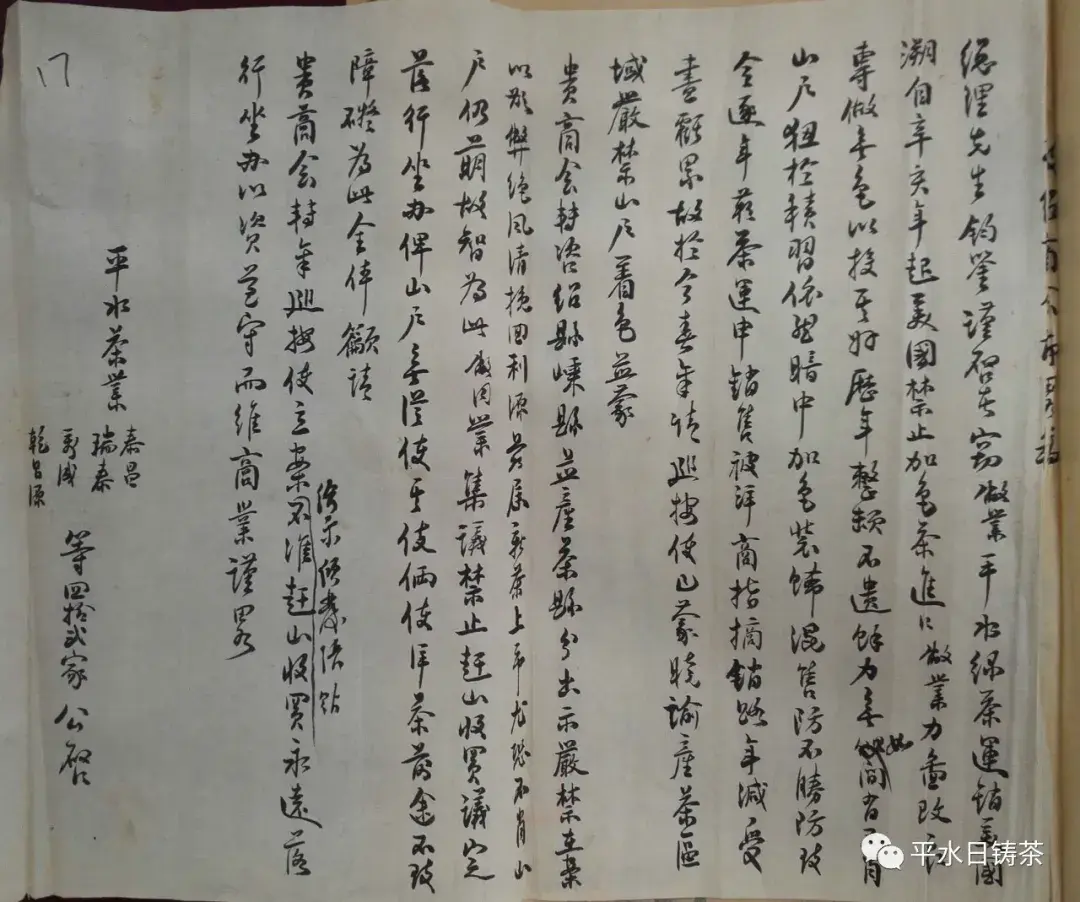 總理先生鈞鑒謹啓者竊敝業平水綠茶運銷美國
溯自辛亥年起美國禁止加色茶進口敝業力圖改良
專做無色以投其好歷年整頓不遺餘力無如間有不肖
山戶狃於積習依然暗中加色裝飾混售防不勝防致
令逐年新茶運申銷售被洋商指摘銷路年減受
盡虧累故於今春請巡按使已蒙曉諭產茶區
域嚴禁山戶着色並蒙
貴商會轉咨紹縣嵊縣並產茶縣分出示嚴禁在案
以冀弊絕風清挽回利源茲屆新茶上市尤恐不肖山
戶仍萌故智為此敝同業集議禁止赶山收買議定
落行坐办俾山戶無從使其伎俩使洋茶前途不致
障礙為此仝伴籲請
貴商會轉巡按使立案不准赶山收買永遠落
給示張貼
行坐办以資遵守而維商業謹畧
平水茶業
泰昌
瑞泰
乾昌源
等四拾弍家 公啓
17
平水日铸茶